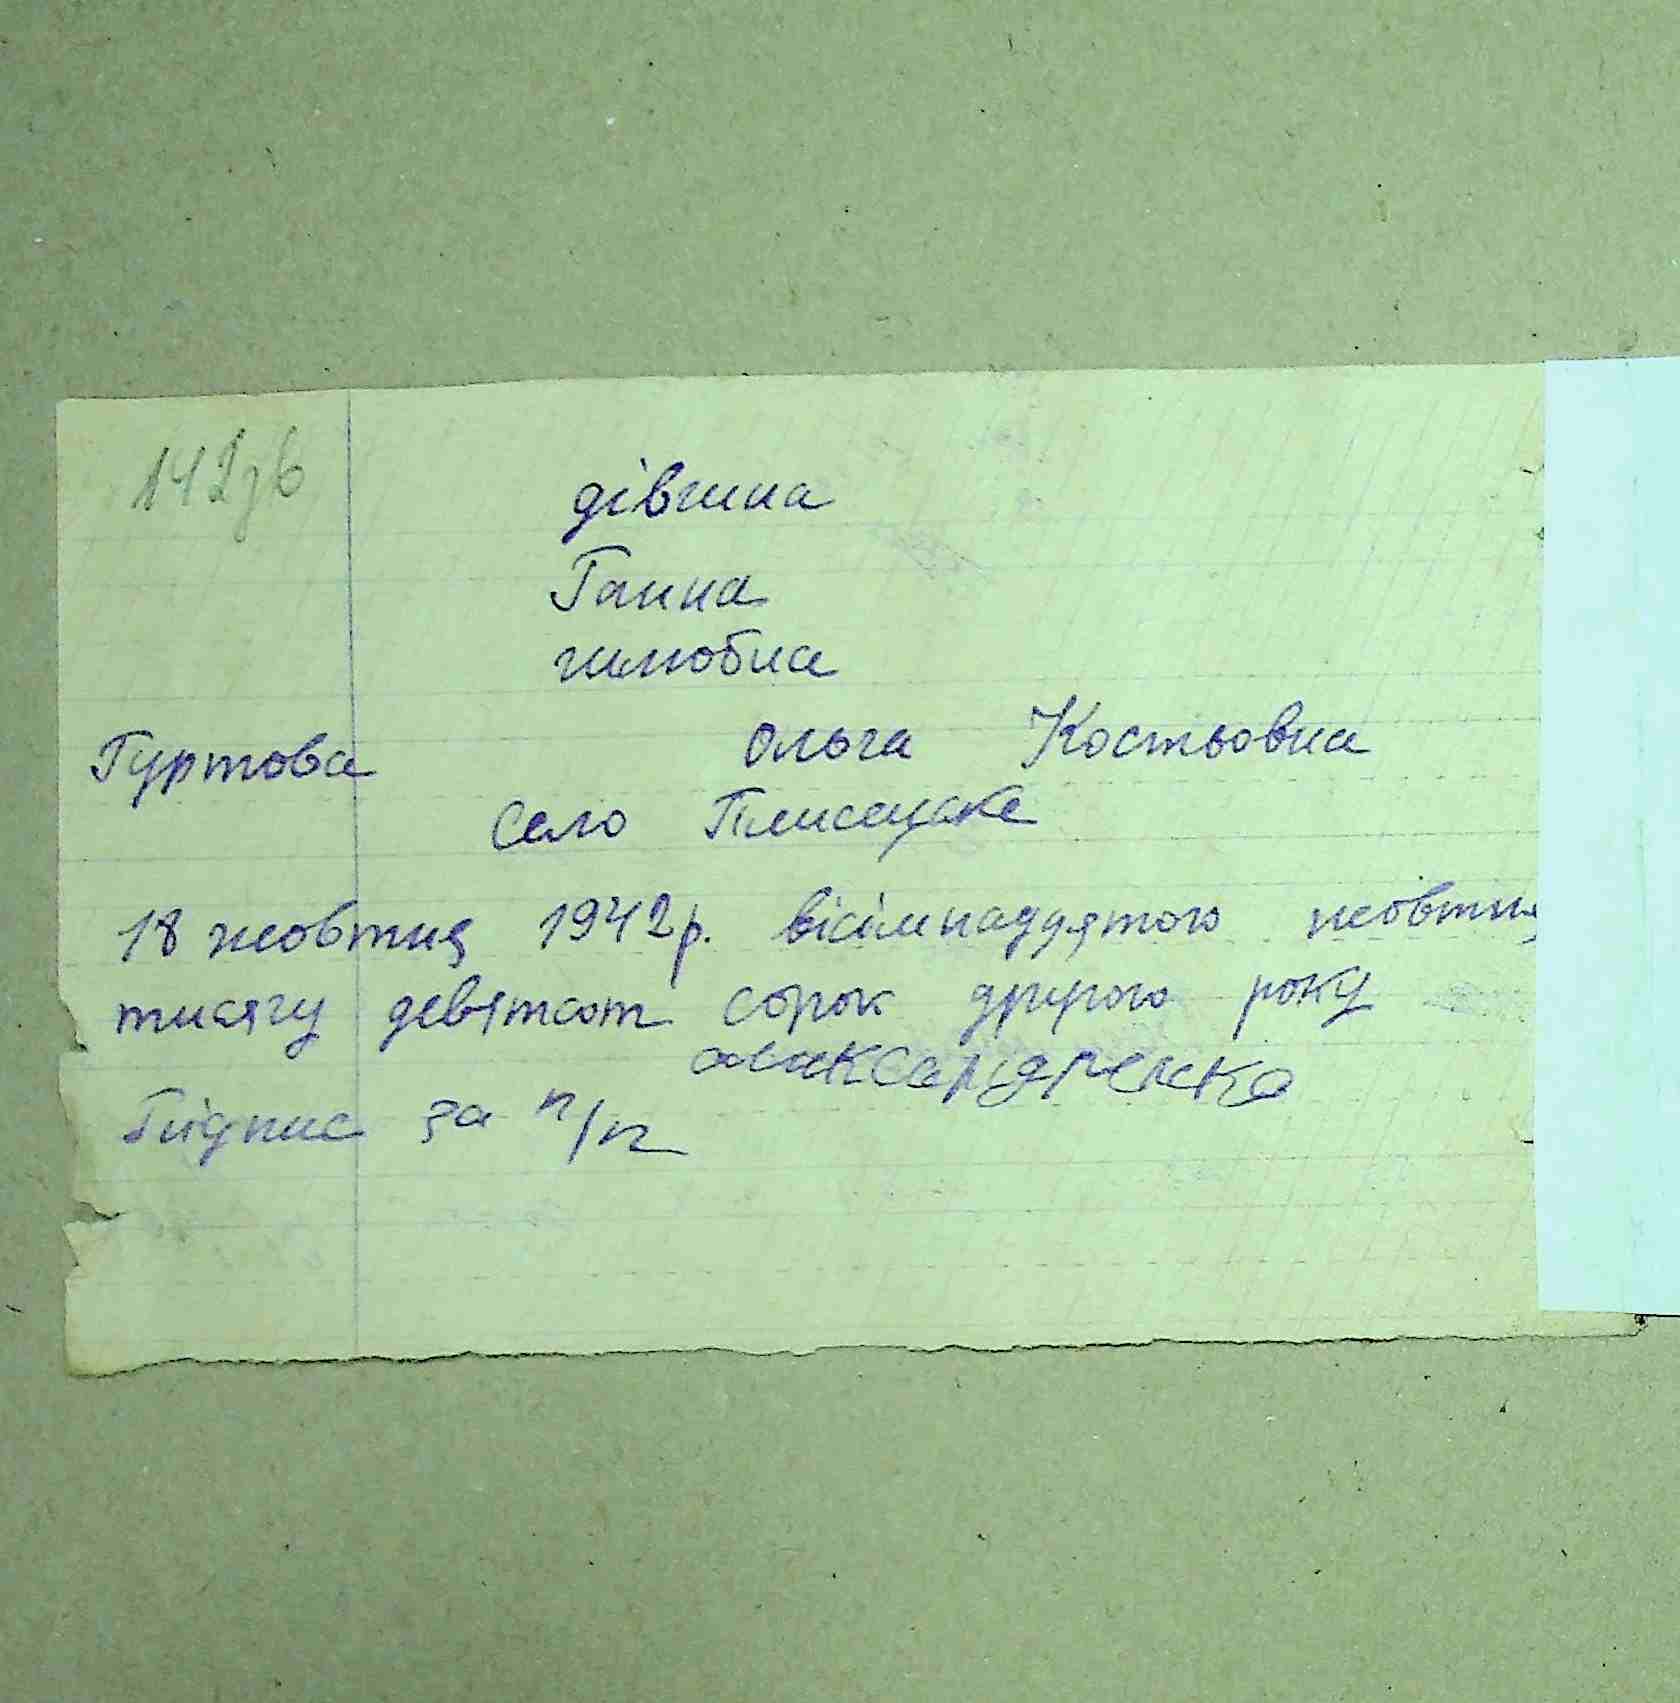 142зв
дівчина
Ганна
шлюбна
Гуртова Ольга Костьовна
Село Плисецьке
18 жовтня 1942 р. вісімнадцятого жовтня
тисячу девятсот сорок другого року
Підпис за п/п